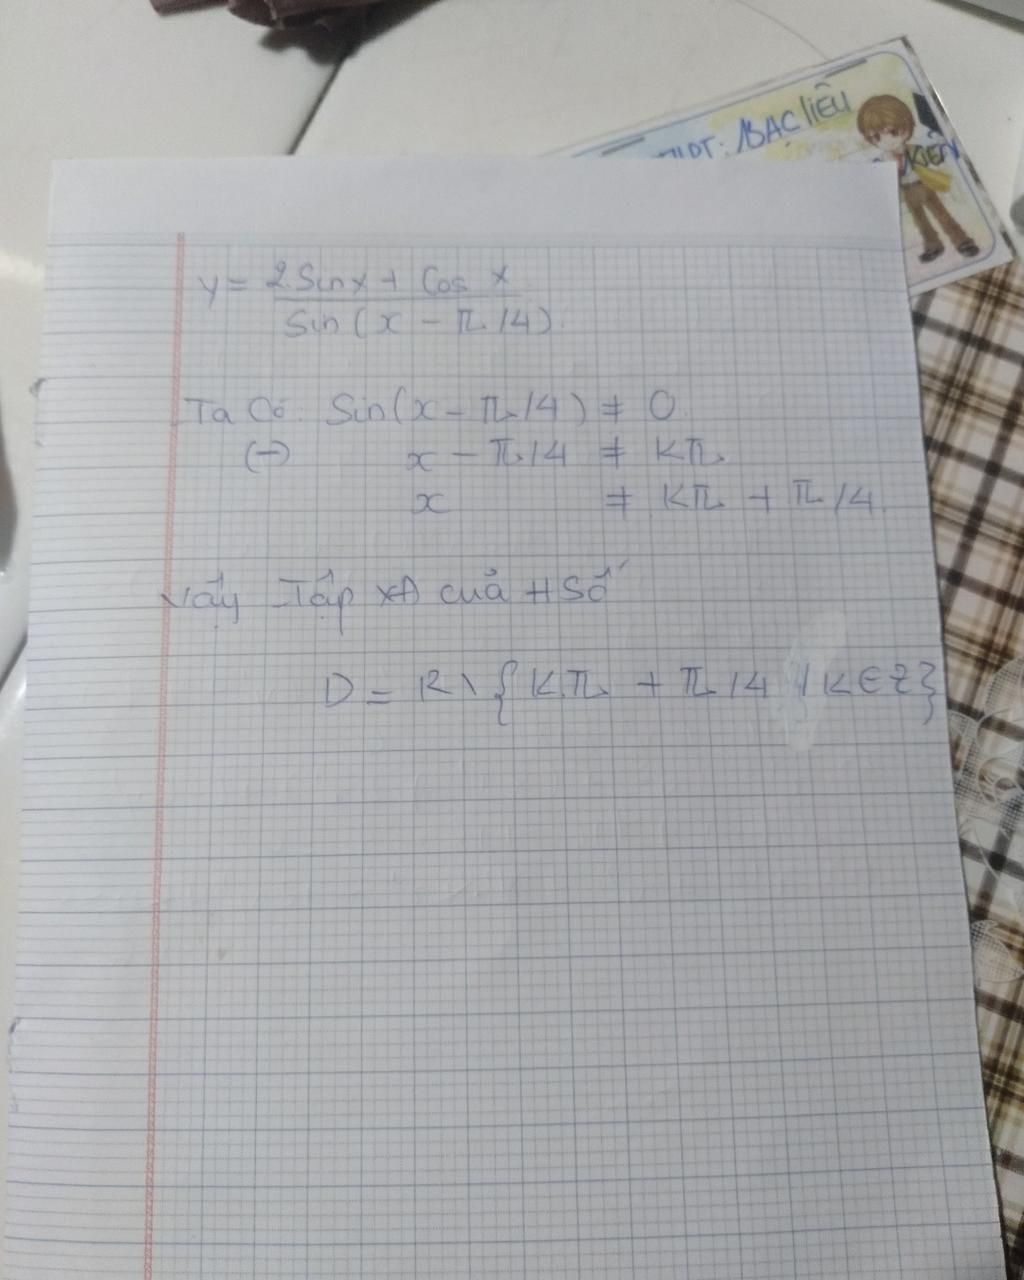 BẠC LIÊU
y = 2.Sin x + Cos x
Sin (x - π/4)
Ta Có: Sin(x - π/4) ≠ 0
(-) x - π/4 ≠ Kπ
x ≠ Kπ + π/4
Vậy Tập XĐ của H Số
D = R \ { K.π + π/4 / K ∈ Z }